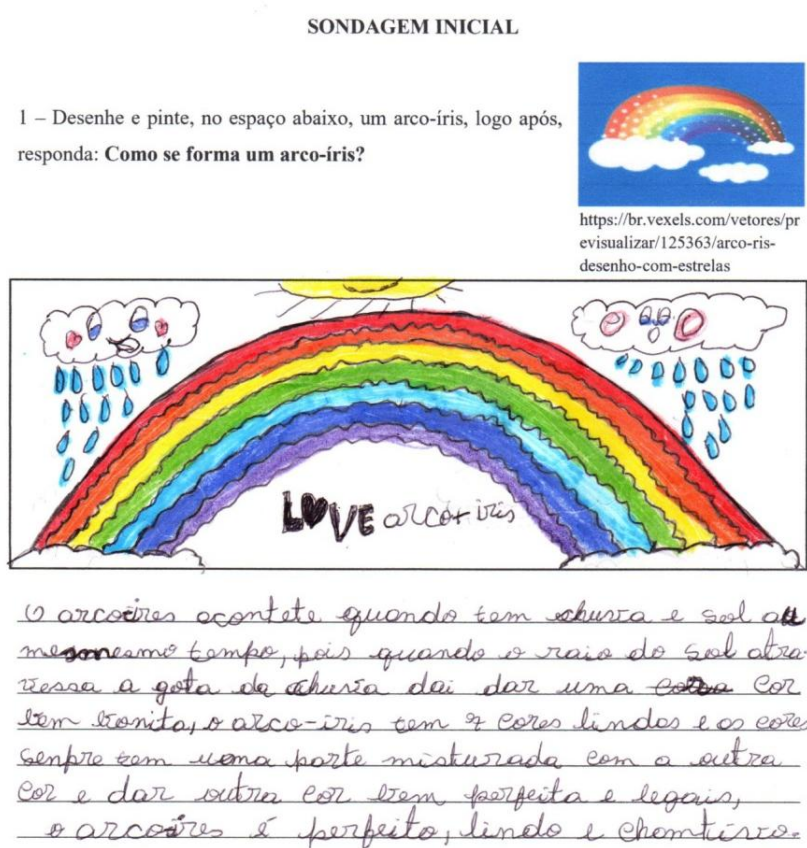 SONDAGEM INICIAL
1 – Desenhe e pinte, no espaço abaixo, um arco-íris, logo após,
responda: Como se forma um arco-íris?
https://br.vexels.com/vetores/pr
evisualizar/125363/arco-ris-
desenho-com-estrelas
LOVE arco-iris
O arcoires acontete quando tem chuvia e sol au
mesmo tempo, pois quando o raio do sol atra-
vessa a gota da chuvia dai dar uma cor
bem bonita, o arco-iris tem 7 cores lindas e as cores
senpre tem uma parte misturada com a outra
cor e dar outra cor bem perfeita e legais,
o arcoires é perfeito, lindo e